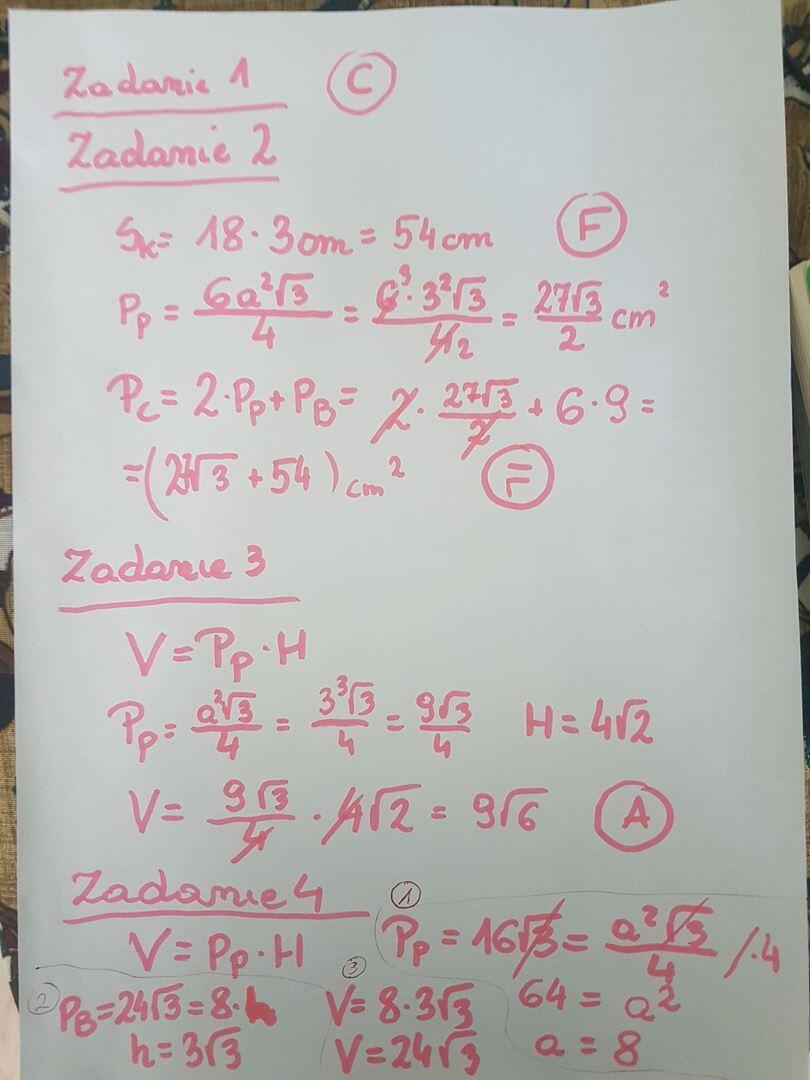 Zadanie 1 C
Zadanie 2
Sk = 18 · 3cm = 54cm F
Pp = 6a²√3/4 = 6³·3²√3/4 2 = 27√3/2 cm²
Pc = 2·Pp + PB = 2 · 27√3/2 + 6·9 =
= (27√3 + 54) cm² F
Zadanie 3
V = Pp · H
Pp = a²√3/4 = 3³√3/4 = 9√3/4 H = 4√2
V = 9√3/4 · 4√2 = 9√6 A
Zadanie 4
V = Pp · H
① Pp = 16√3 = a²√3/4 /·4
64 = a²
a = 8
② PB = 24√3 = 8·h
h = 3√3
③ V = 8·3√3
V = 24√3